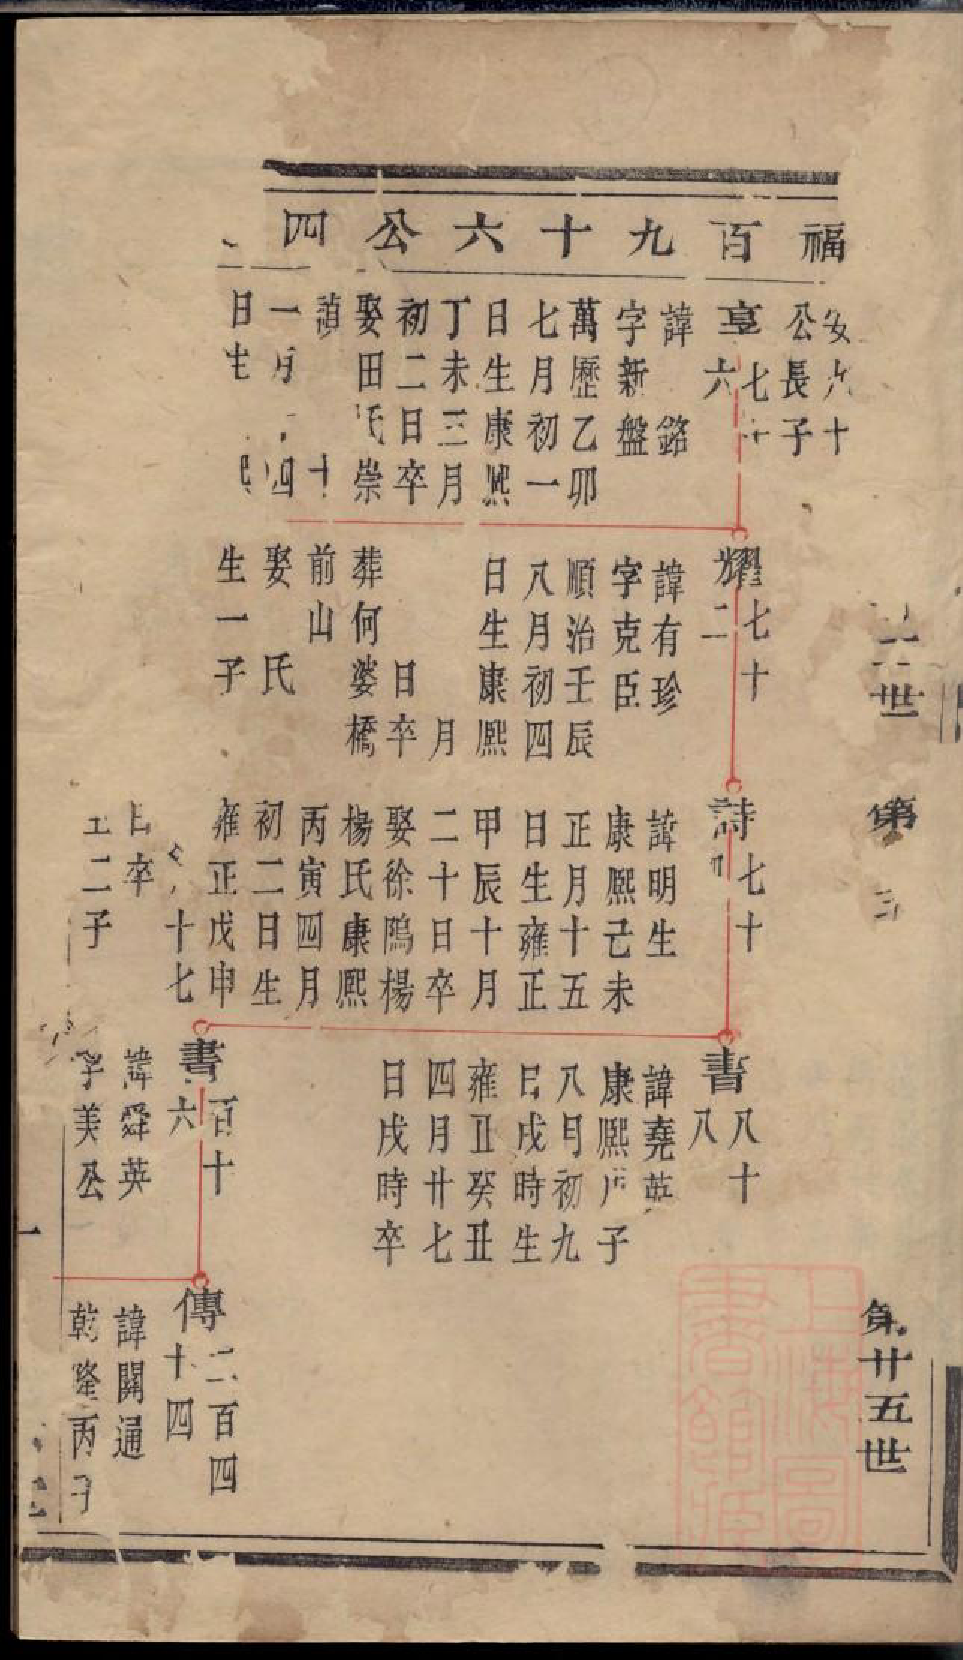 福百九十六公四
世
第
第廿五世
安六十
公長子
亨七十
六
諱銘
字新盤
萬歷乙卯
七月初一
日生康熙
丁未三月
初二日卒
娶田氏崇
禎十
一月四
日生
耀七十
二
諱有珍
字克臣
順治壬辰
八月初四
日生康熙
月
日卒
葬何婆橋
前山
娶氏
生一子
詩七十
諱明生
康熙己未
正月十五
日生雍正
甲辰十月
二十日卒
娶徐隝楊
楊氏康熙
丙寅四月
初二日生
雍正戊申
十七
日卒
二子
書八十
八
諱堯英
康熙子
八月初九
日戌時生
雍正癸丑
四月廿七
日戌時卒
書百十
六
諱舜英
字美公
傳二百四
十四
諱開通
乾隆丙子